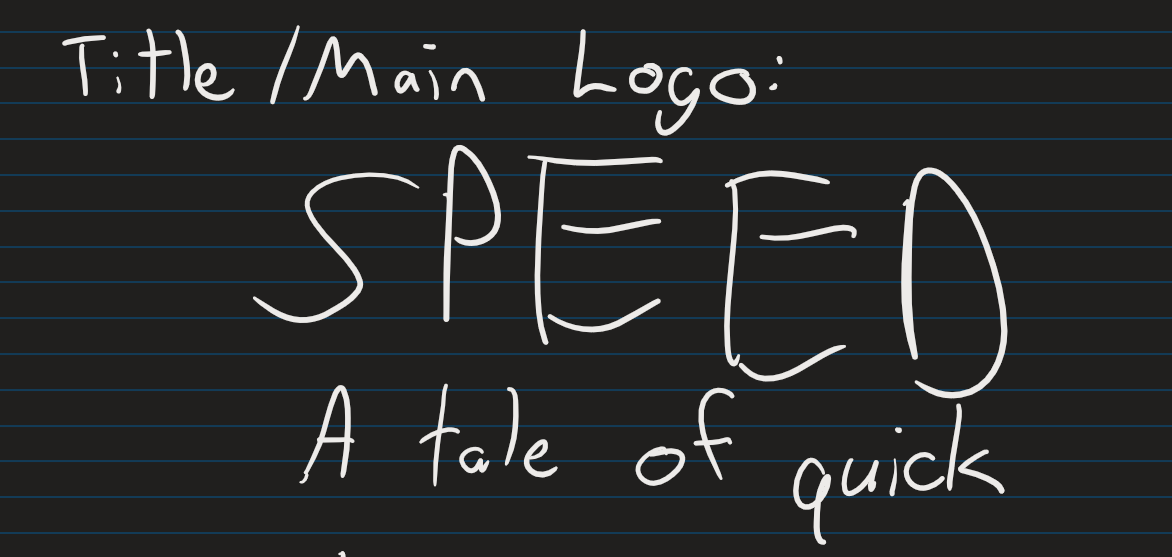 Title/Main Logo:
SPEED
A tale of quick